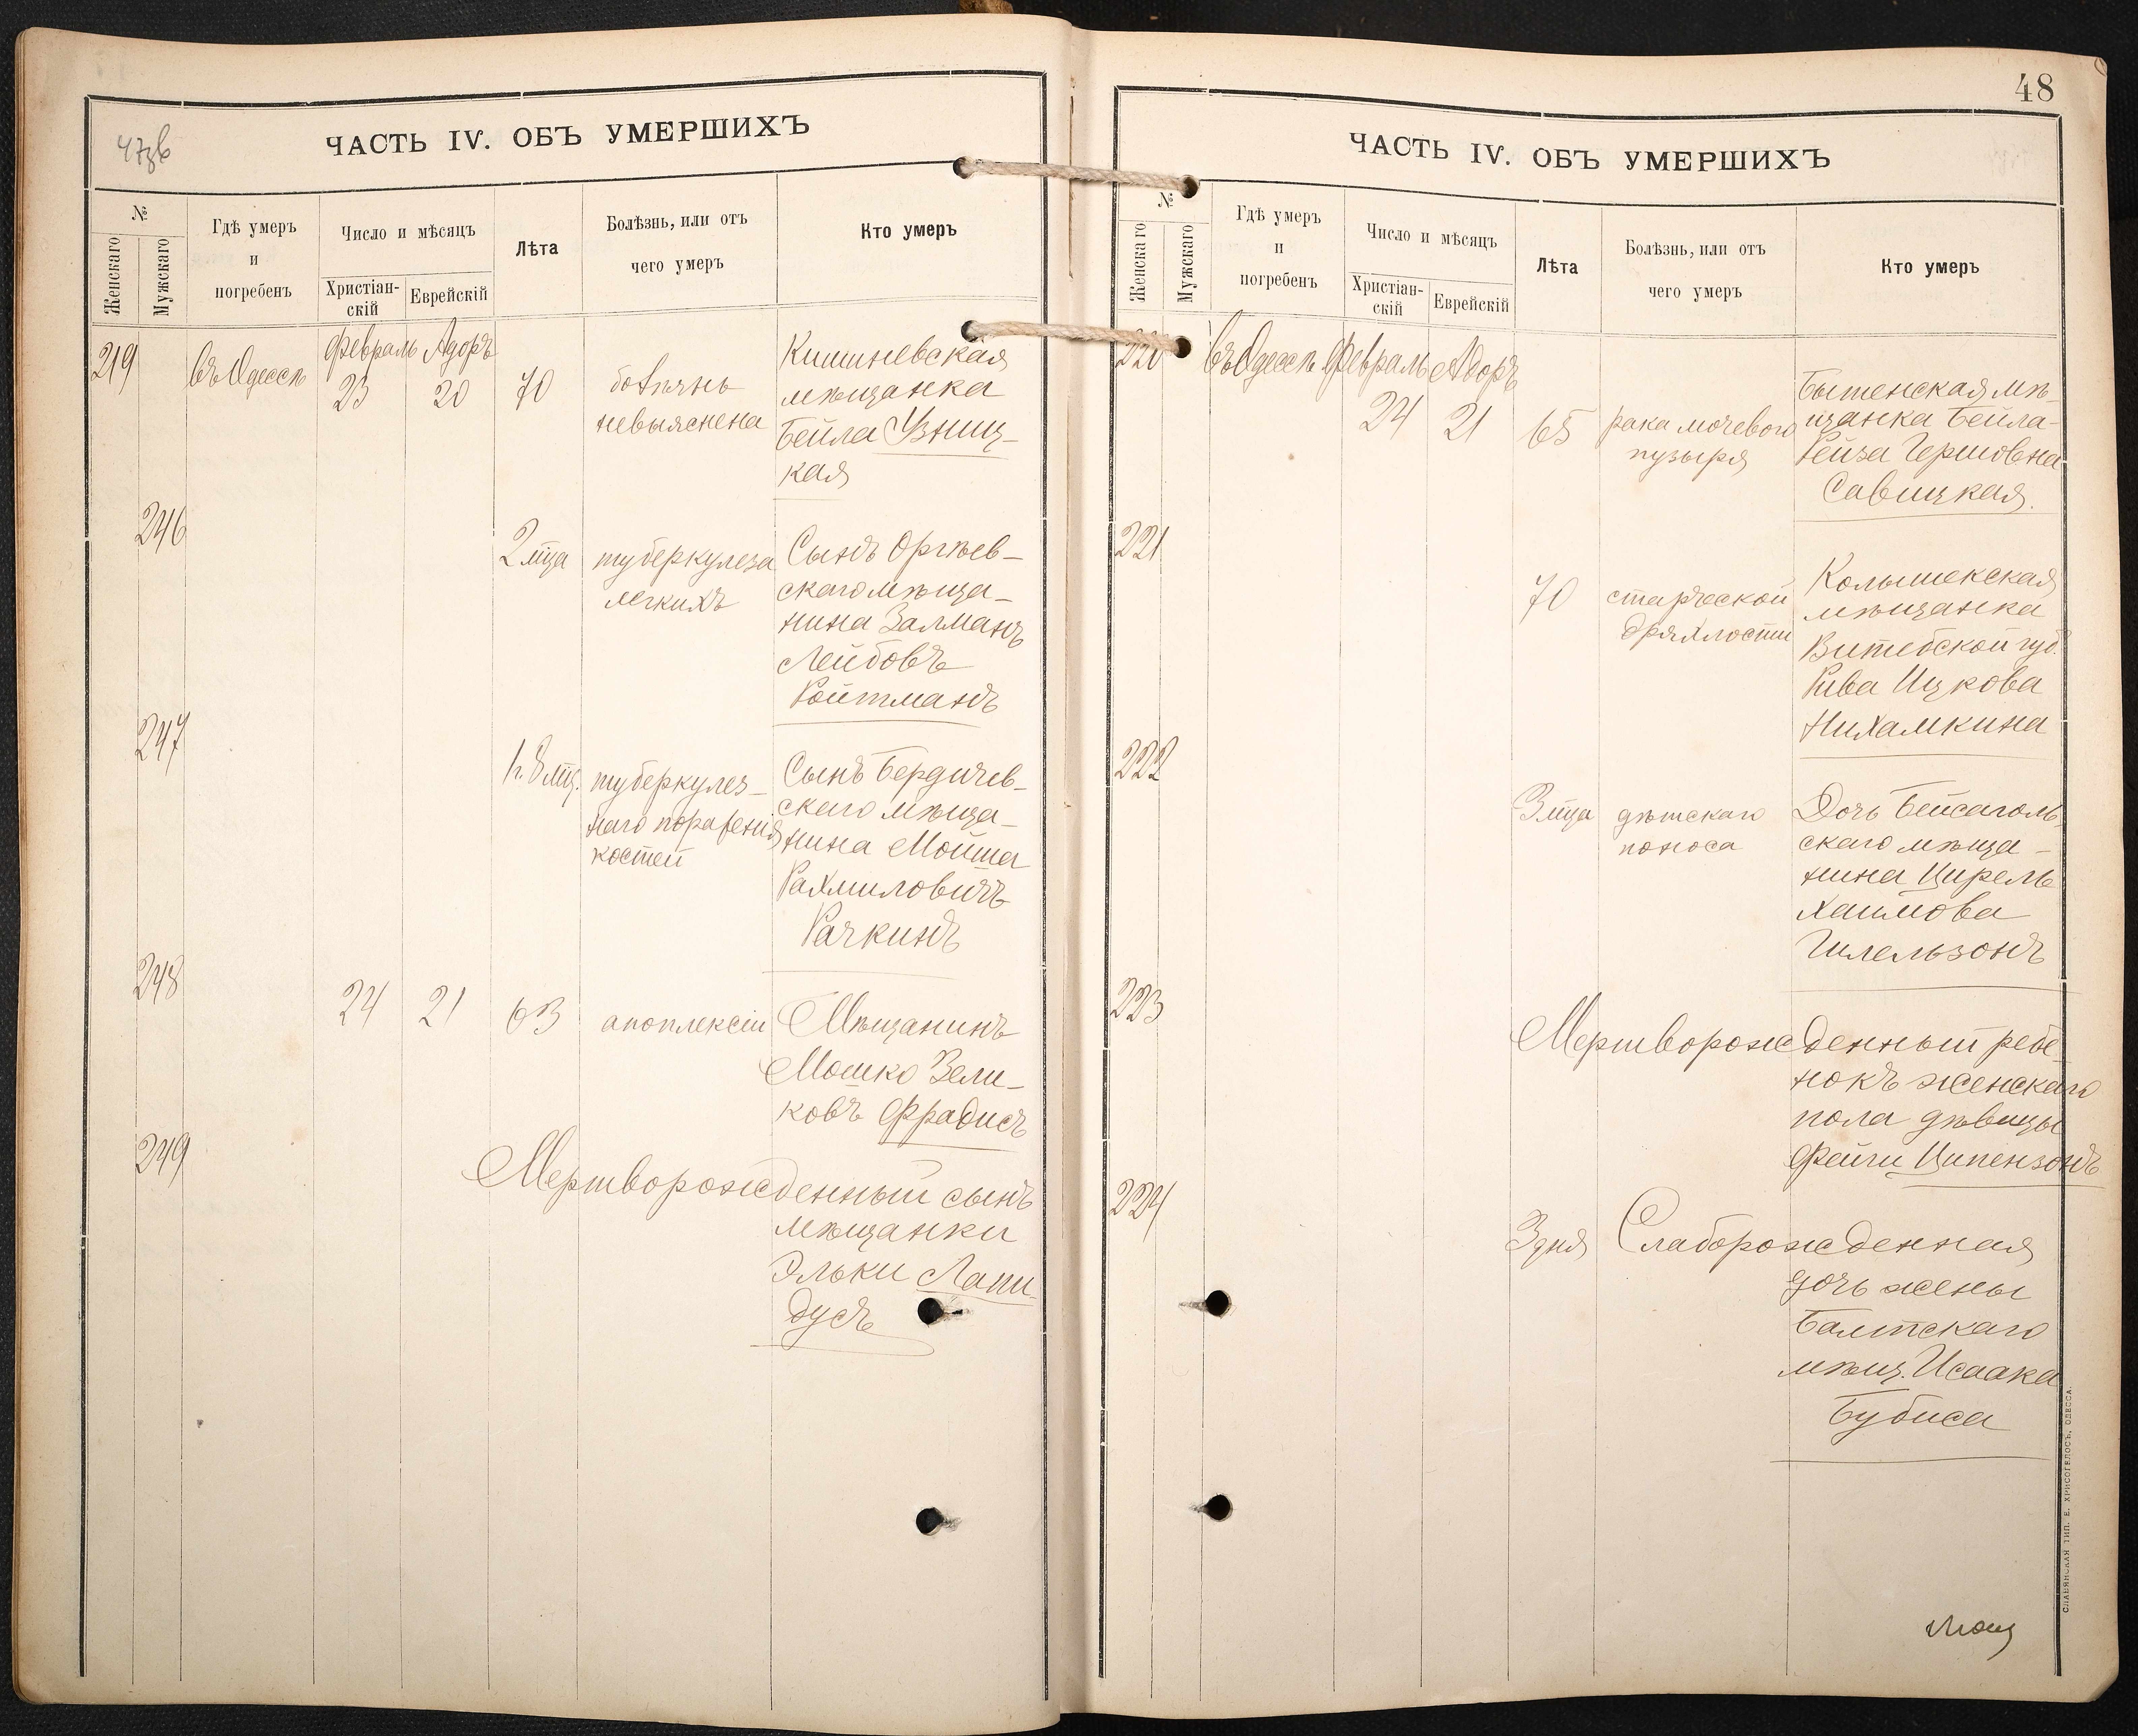 47зв
ЧАСТЬ IV. ОБЪ УМЕРШИХЪ
№
Женскаго
Мужскаго
Гдѣ умеръ
и
погребенъ
Число и мѣсяцъ
Христіан-
скій
Еврейскій
Лѣта
Болѣзнь, или отъ
чего умеръ
Кто умеръ
219 въ Одессѣ Февраль Адоръ
23 20 70
болѣзнь
невыяснена
Кишиневская
мѣщанка
Бейла Узниц-
кая
246
2 мца туберкулеза
легкихъ
Сынъ Оргѣев-
скаго мѣща-
нина Залманъ
Лейбовъ
Ройтманъ
247
1 г. 8 мц. туберкулез-
наго пораженія
костей
Сынъ Бердичев-
скаго мѣща-
нина Мойша
Рахмиловичъ
Рачкинъ
248
24 21 63 апоплексіи
Мѣщанинъ
Мошко Зели-
ковъ Фрадисъ
249
Мертворожденный сынъ
мѣщанки
Эльки Лапи-
дусъ
48
ЧАСТЬ IV. ОБЪ УМЕРШИХЪ
№
Женскаго
Мужскаго
Гдѣ умеръ
и
погребенъ
Число и мѣсяцъ
Христіан-
скій
Еврейскій
Лѣта
Болѣзнь, или отъ
чего умеръ
Кто умеръ
220 въ Одессѣ Февраль Адоръ
24 21 65 рака мочевого
пузыря
Бытенская мѣ-
щанка Бейла-
Рейза Гершовна
Савицкая.
221
70 старческой
дряхлости
Колышекская
мѣщанка
Витебской губ.
Рива Ицкова
Нихамкина
222
3 мца дѣтскаго
поноса
Дочь Бейсаголь-
скаго мѣща-
нина Цирель
Хаимова
Гилельзонъ
223
Мертворожденный ребе-
нокъ женскаго
пола дѣвицы
Фейги Ципензонъ
224
3 дня Слаборожденная
дочь жены
Балтскаго
мѣщ. Исаака
Бубиса
СЛАВЯНСКАЯ ТИП. Е. ХРИСОГЕЛОСЪ, ОДЕССА.